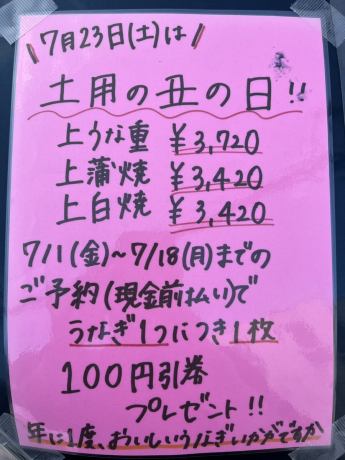 \\ 7月23日(土)は //
土用の丑の日!!
上うな重 ¥3,720
上蒲焼 ¥3,420
上白焼 ¥3,420
7/1(金)~7/18(月)までの
ご予約(現金前払い)で
うなぎ1つにつき1枚
100円引券
プレゼント!!
年に1度、おいしいうなぎいかがですか